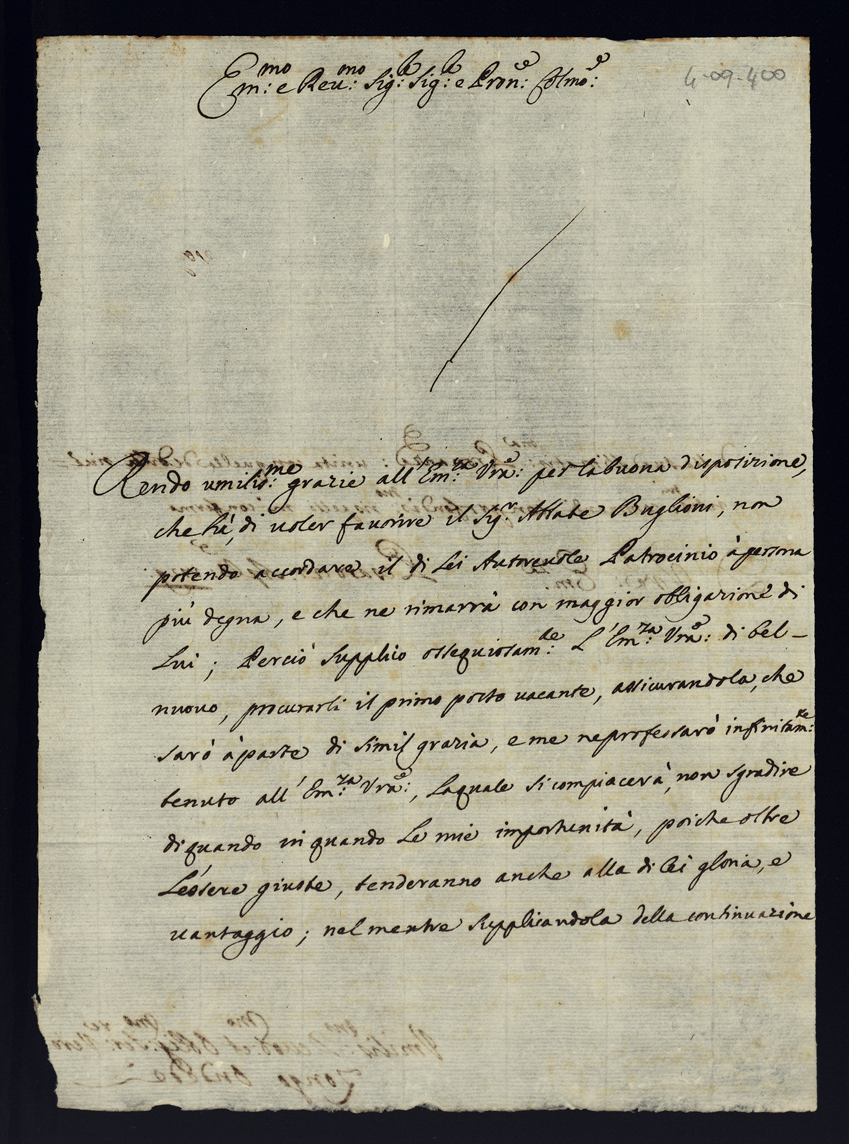 Em:mo e Reu:mo Sig:le Sig:le e Pron:e Colmo:e
4-09-400
Rendo umilis:me grazie all'Em:za Vrã:e per la buona disposizione,
che hà, di uoler fauorire il Sig:r Abbate Buglioni, non
potendo accordare il di Lei Autreuole Patrocinio à persona
più degna, e che ne rimarrà con maggior obligazione di
Lui; Perciò Supplico ossequiosam:te L'Em:za Vrã:e di bel-
nuouo, procurarli il primo posto uacante, assicurandola, che
sarò à parte di simil grazia, e me ne professarò infinitam:te
tenuto all'Em:za Vrã:e, Laquale si compiacerà, non sgradire
di quando in quando Le mie importunità, poiche oltre
L'essere giuste, tenderanno anche alla di Lei gloria, e
uantaggio; nel mentre Supplicandola della continuazione